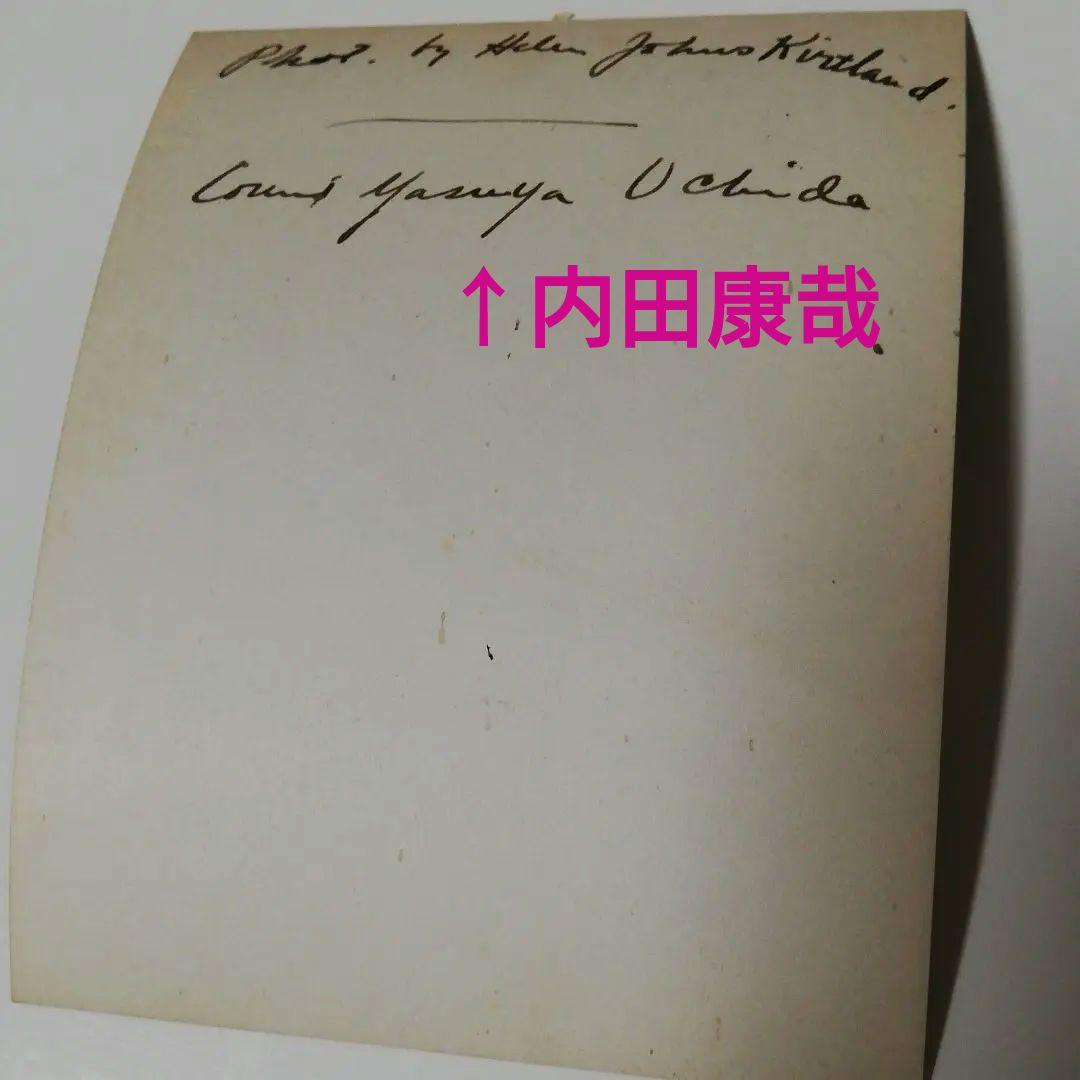 Phot. by Helen Johns Kirtland.
Count Yasuya Uchida
↑内田康哉